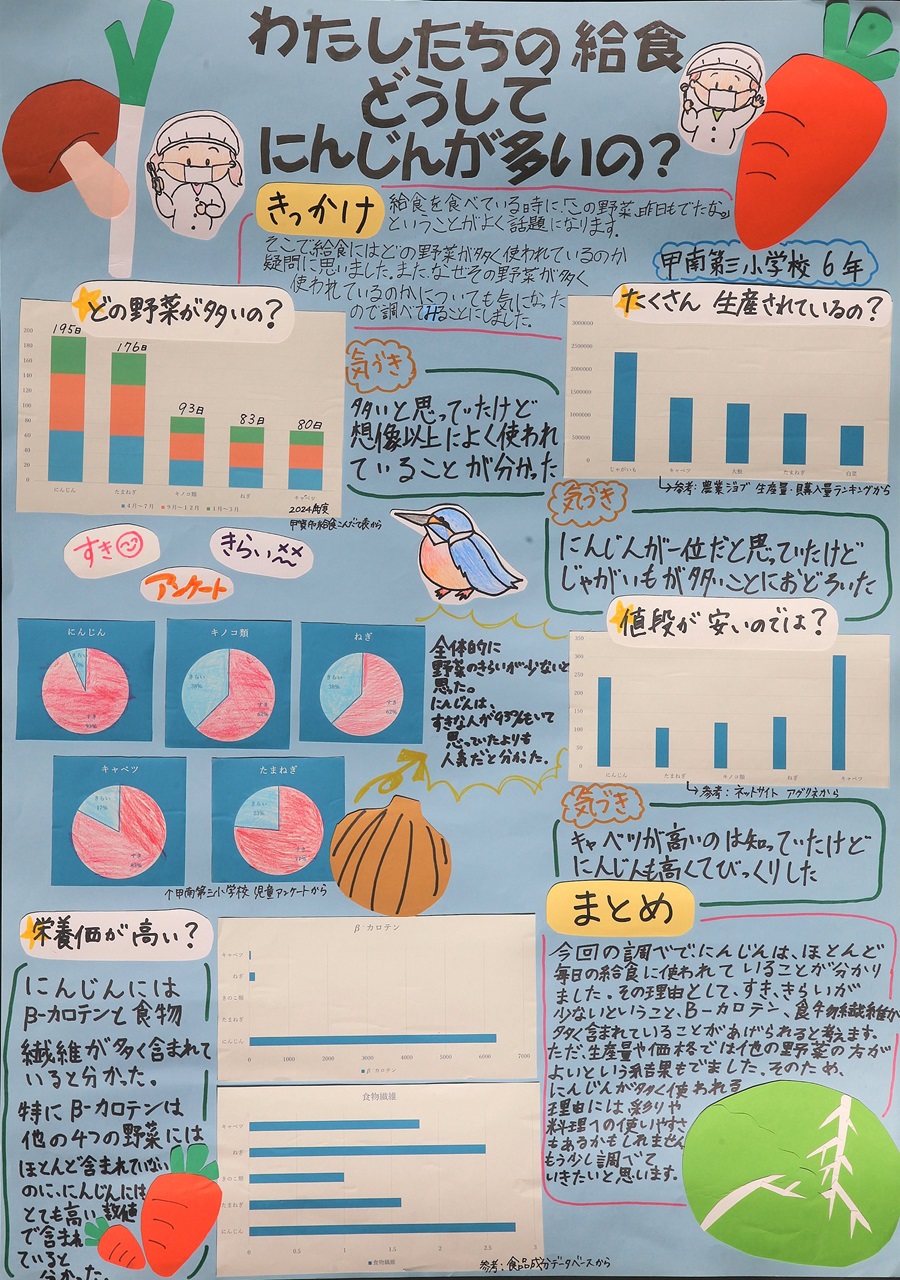 わたしたちの給食
どうして
にんじんが多いの？
きっかけ
給食を食べている時に、「この野菜、昨日もでたな。」
ということがよく話題になります。
そこで給食にはどの野菜が多く使われているのか
疑問に思いました。また、なぜその野菜が多く
使われているのかについても気になった
ので調べてみることにしました。
甲南第三小学校 6年
どの野菜が多いの？
195日
176日
93日
83日
80日
200
180
160
140
120
100
80
60
40
20
0
にんじん
たまねぎ
キノコ類
ねぎ
キャベツ
■4月～7月 ■9月～12月 ■1月～3月
2024年度
甲賀市給食こんだて表から
気づき
多いと思っていたけど
想像以上によく使われ
ていることが分かった
たくさん 生産されているの？
3000000
2500000
2000000
1500000
1000000
500000
0
じゃがいも
キャベツ
大根
たまねぎ
白菜
参考：農業ジョブ 生産量・購入量ランキングから
気づき
にんじんが一位だと思っていたけど
じゃがいもが多いことにおどろいた
すき
きらい
アンケート
にんじん
きらい
7%
すき
93%
キノコ類
きらい
38%
すき
62%
ねぎ
きらい
38%
すき
62%
キャベツ
きらい
17%
すき
83%
たまねぎ
きらい
すき
↑甲南第三小学校 児童アンケートから
全体的に
野菜のきらいが少ないと
思った。
にんじんは、
すきな人が93%もいて
思っていたよりも
人気だと分かった。
値段が 安いのでは？
350
300
250
200
150
100
50
0
にんじん
たまねぎ
キノコ類
ねぎ
キャベツ
参考：ネットサイト アグリネから
気づき
キャベツが高いのは知っていたけど
にんじんも高くてびっくりした
栄養価が高い？
にんじんには
β-カロテンと食物
繊維が多く含まれて
いると分かった。
特にβ-カロテンは
他の4つの野菜には
ほとんど含まれていない
のに、にんじんには
とても高い数値
で含まれ
ていると
分かった。
β-カロテン
キャベツ
ねぎ
きのこ類
たまねぎ
にんじん
0
1000
2000
3000
4000
5000
6000
7000
■β-カロテン
食物繊維
キャベツ
ねぎ
きのこ類
たまねぎ
にんじん
0
0.5
1
1.5
2
2.5
3
■食物繊維
参考：食品成分データベースから
まとめ
今回の調べで、にんじんは、ほとんど
毎日の給食に使われていることが分かり
ました。その理由として、すき、きらいが
少ないということ、β-カロテン、食物繊維が
多く含まれていることがあげられると考えます。
ただ、生産量や価格では他の野菜の方が
よいという結果もでました。そのため、
にんじんが多く使われる
理由には彩りや
料理への使いやすさ
もあるかもしれません
もう少し調べて
いきたいと思います。